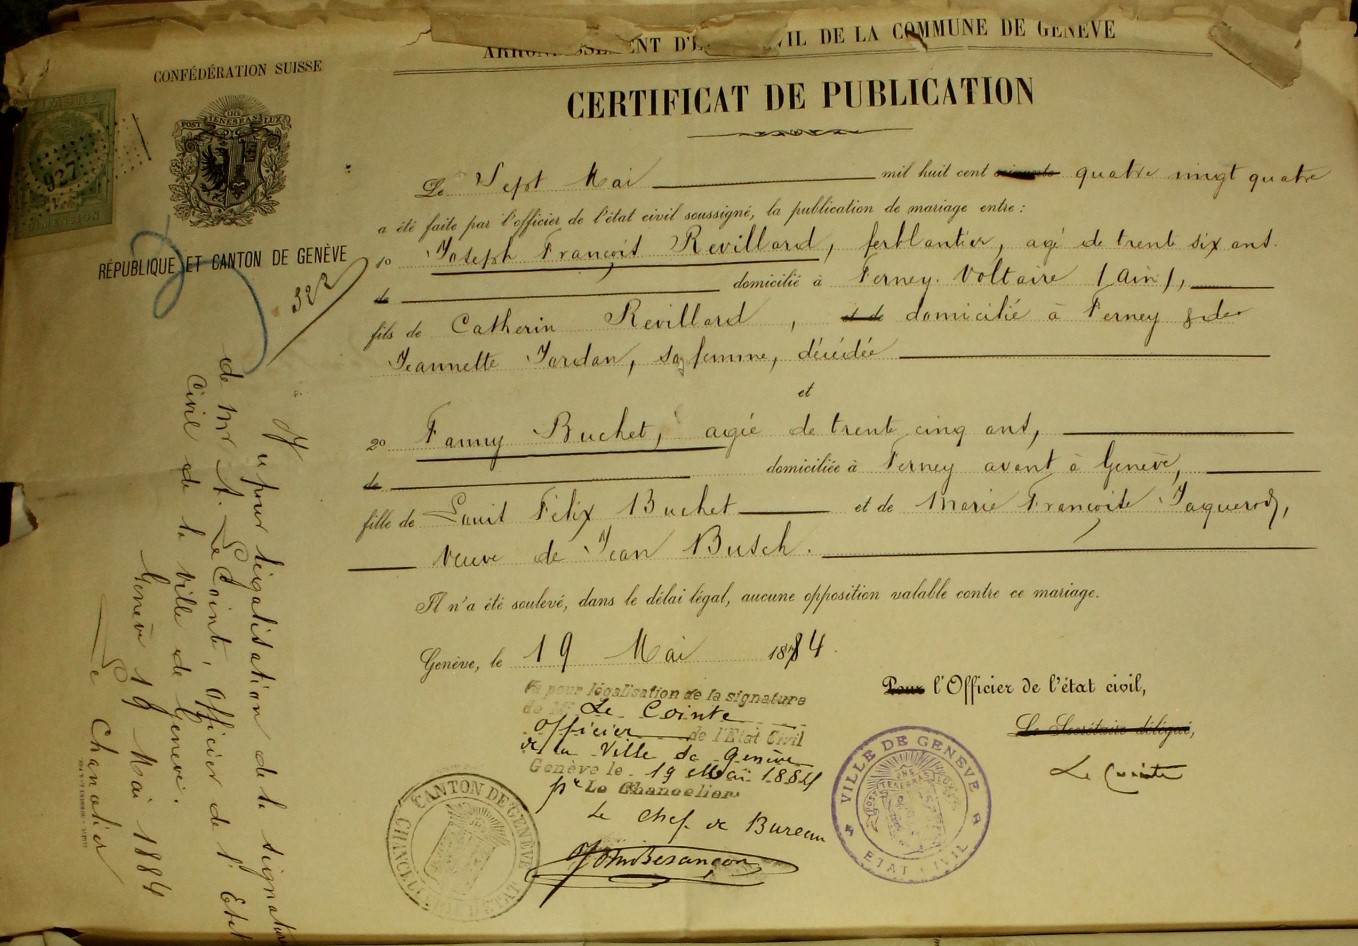 ARRONDISSEMENT D'ÉTAT CIVIL DE LA COMMUNE DE GENÈVE
CONFÉDÉRATION SUISSE
CERTIFICAT DE PUBLICATION
TIMBRE
927
POST TENEBRAS LUX
RÉPUBLIQUE ET CANTON DE GENÈVE
322
Le Sept Mai mil huit cent quatre vingt quatre
a été faite par l'officier de l'état civil soussigné, la publication de mariage entre:
1o Joseph François Revillard, ferblantier, agé de trent six ans.
de domicilié à Ferney. Voltaire (Ain),
fils de Catherin Revillard, et de domicilié à Ferney & de
Jeannette Jordan, sa femme, décédée
et
2o Fanny Buchet, agée de trent cinq ans,
de domiciliée à Ferney avant à Genève,
fille de Louis Félix Buchet et de Marie Françoise Jaquerod,
veuve de Jean Busch.
Il n'a été soulevé, dans le délai légal, aucune opposition valable contre ce mariage.
Genève, le 19 Mai 1884.
Pour l'Officier de l'état civil,
Le Secrétaire délégué,
Le Cointe
Vu pour légalisation de la signature
de Mr Le Cointe
Officier de l'Etat Civil
de la Ville de Genève
Genève le 19 Mai 1884
pr Le Chancelier
Le Chef de Bureau
John Besançon
CANTON DE GENÈVE
CHANCELLERIE D'ÉTAT
VILLE DE GENÈVE
POST TENEBRAS
ETAT CIVIL
Vu pour légalisation de la signature
de Mr A. Le Cointe, Officier de l'Etat
Civil de la Ville de Genève.
Genève 19 Mai 1884
Le Chancelier